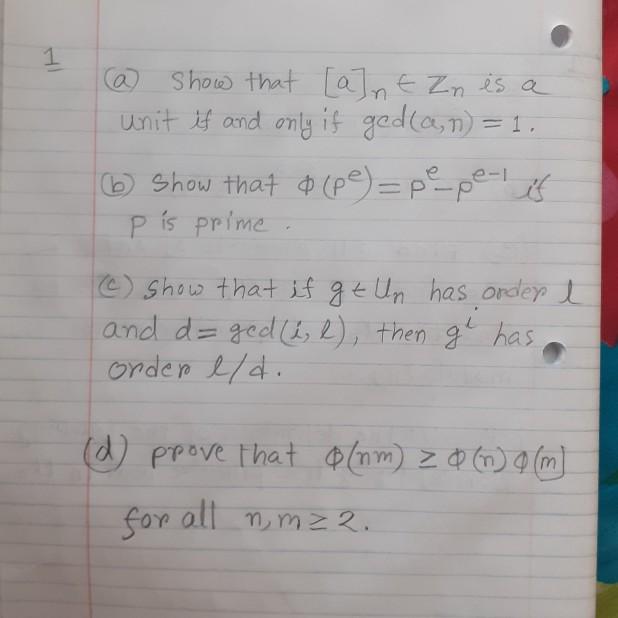 1
(a) Show that [a]ₙ ∈ Zₙ is a
unit if and only if gcd(a,n) = 1.
(b) Show that φ(pᵉ) = pᵉ - pᵉ⁻¹ if
p is prime.
(c) Show that if g ∈ Uₙ has order l
and d = gcd(i, l), then gⁱ has
order l/d.
(d) prove that φ(nm) ≥ φ(n) φ(m)
for all n, m ≥ 2.